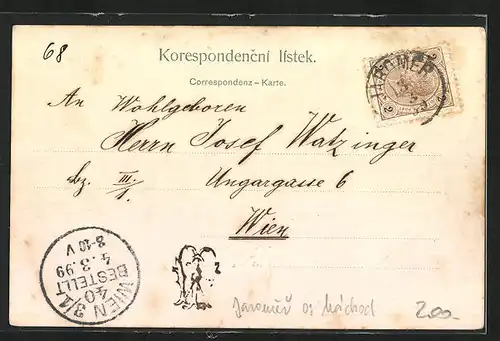 68
Korespondenční lístek.
Correspondenz-Karte.
JAROMER
An Wohlgeboren
Herrn Josef Watzinger
bz. III/1. Ungargasse 6
Wien
WIEN 3/1
40
BESTELLT
4.3.99
8-10 V
Jaroměř os Náchod
200.-